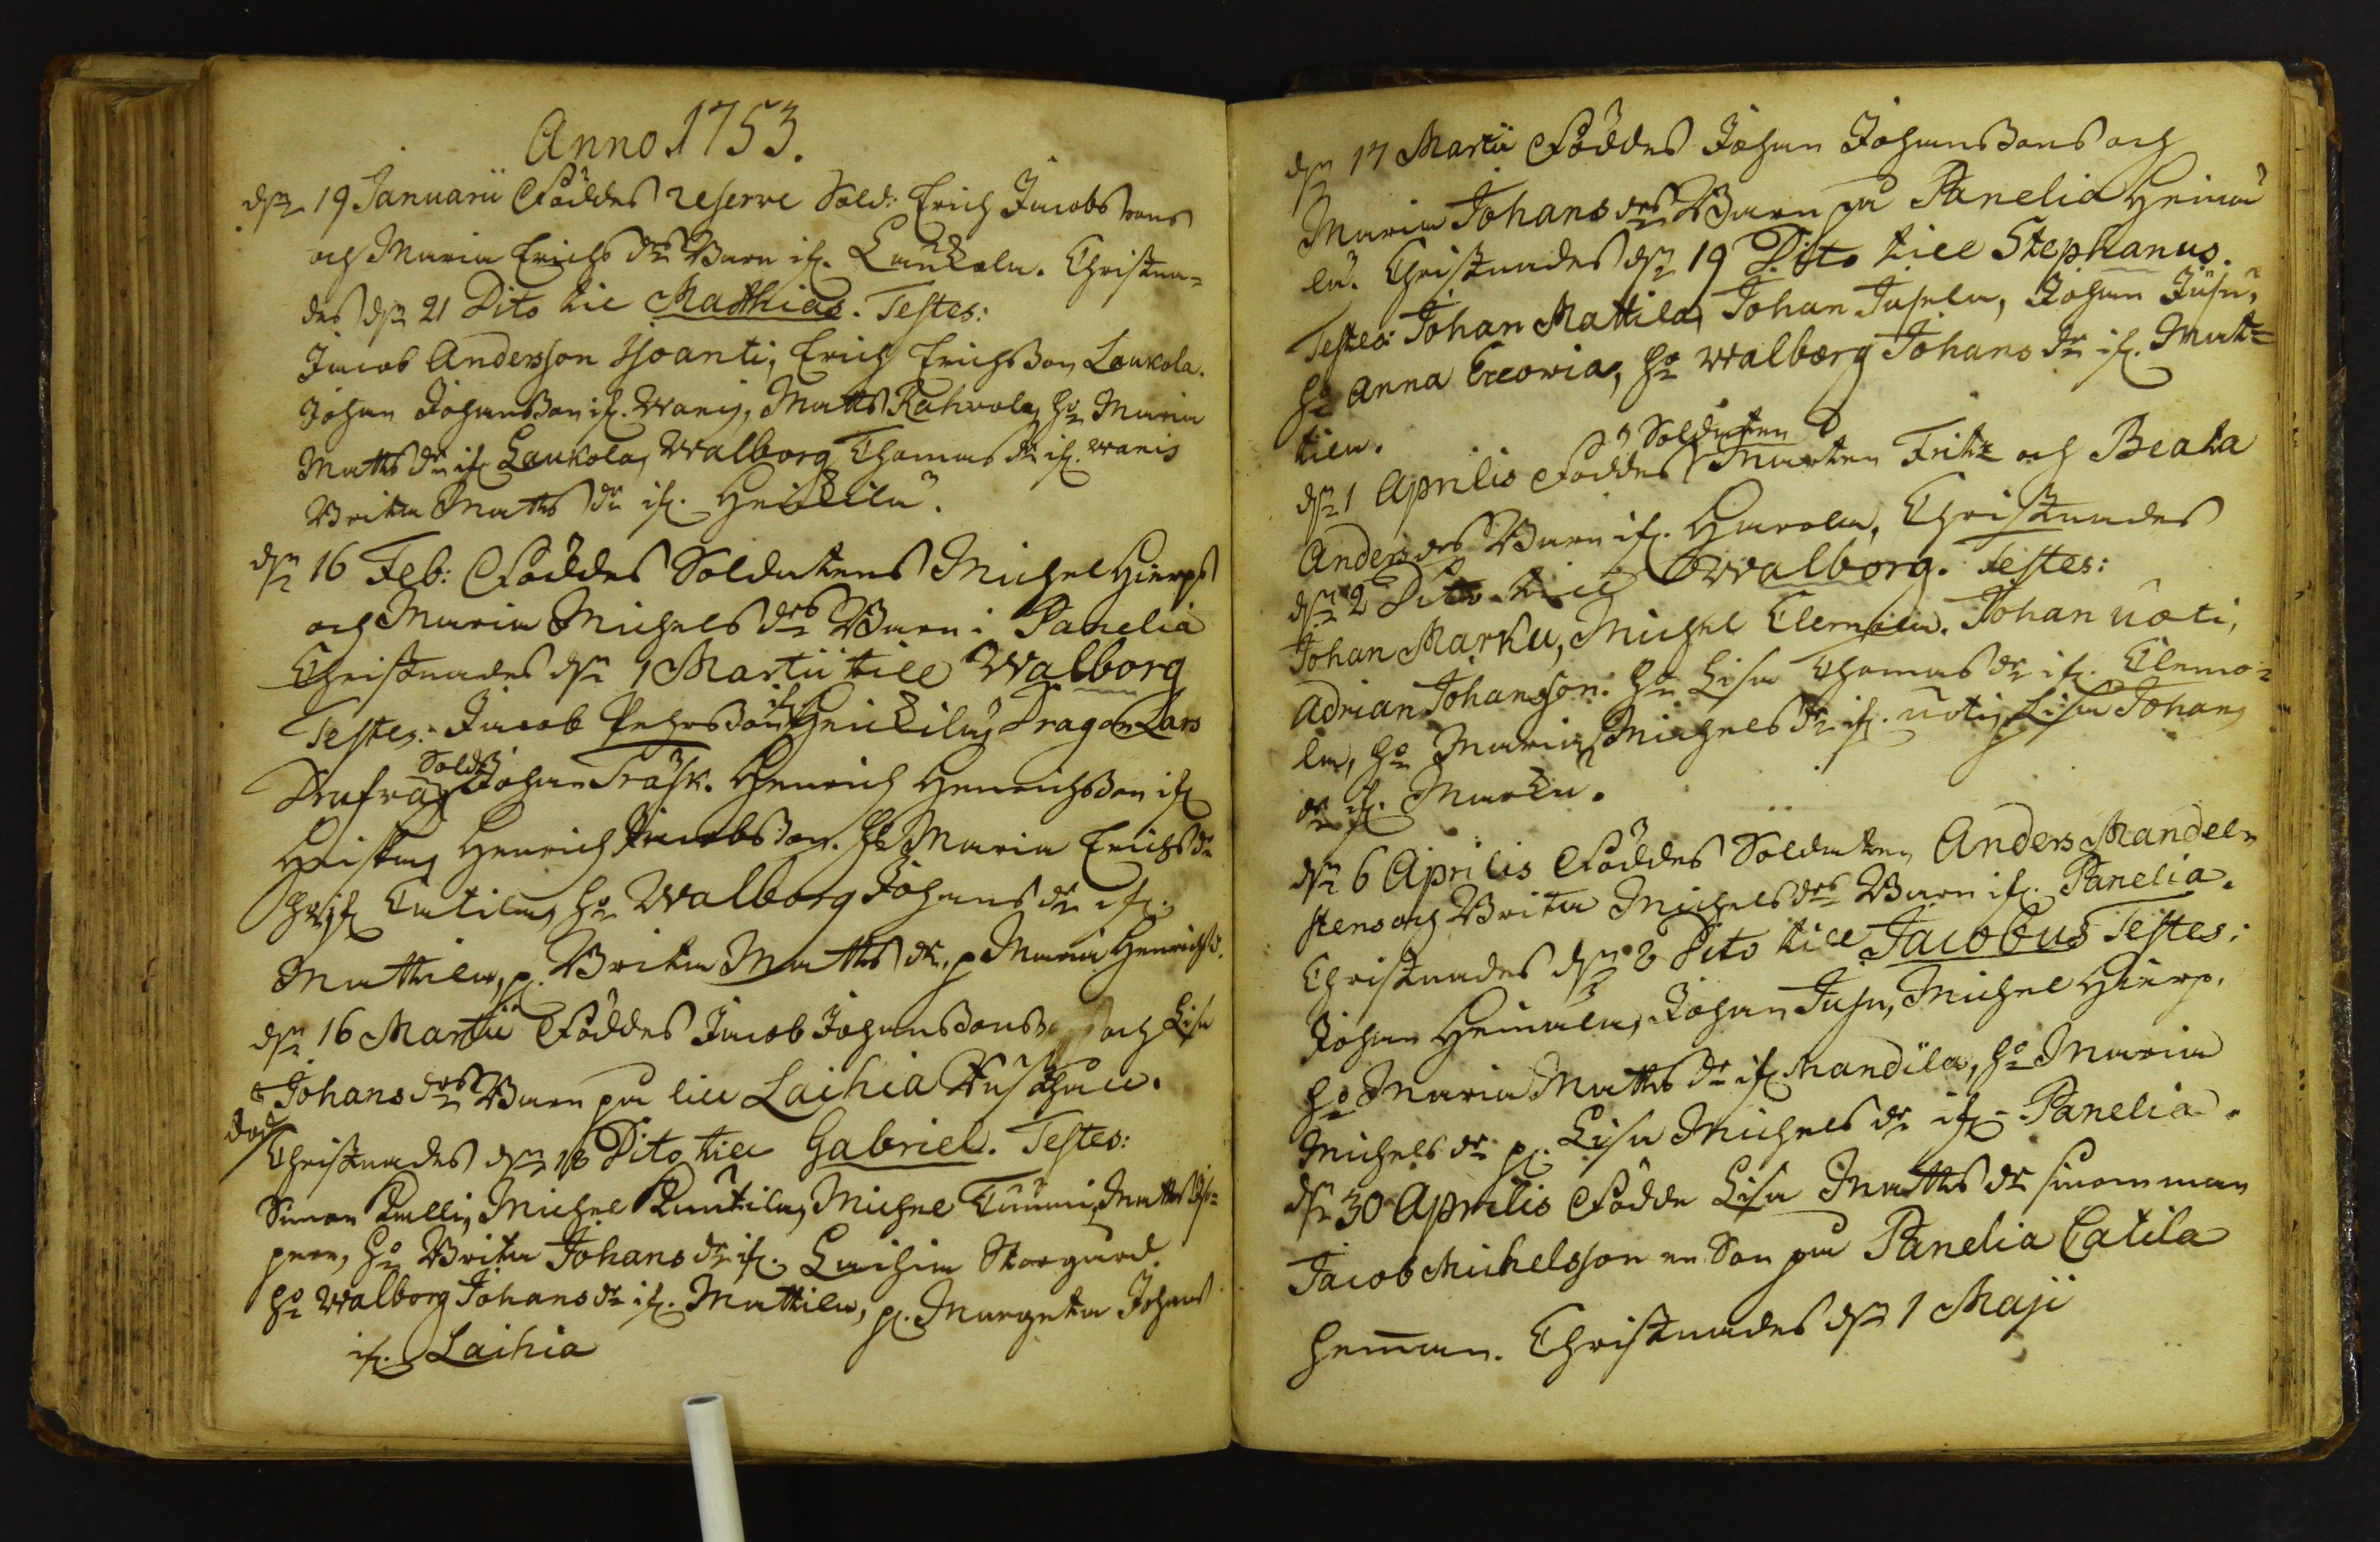 Anno 1753.
dn 19 Januarii Föddes reserve Sold: Erich Jacobssons
och Maria Erichs dr Barn if. Laukola. Christna-
des dn 21 Dito till Mathias. Testes:
Jacob Andersson Isoanti, Erich Erichsson Laukola.
Johan Johansson if. Wanis, Matts Rahvola, ho Maria
Matts dr if Laukola, Walborg Thomas dr if. Wanis
Brita Matts dr if. Heickilä.
dn 16 Feb: Föddes Soldatens Michel Hierps
och Maria Michels drs Barn i Panelia
Christnades dn 1 Martii till Walborg
Testes: Jacob Pehrsson if Heickilä, Dragon Lars
Sold: Johan Träsk. Henrich Henrichsson if
Henrich Jacobsson. ho Maria Erichs dr
if Catila, ho Walborg Johans dr if.
Mattila, p. Brita Matts dr, p Maria Henrichs d.
dn 16 Martii Föddes Jacob Johanssons och Lisa
Johans drs Barn på lill Laihia
död
Christnades dn 18 Dito till Gabriel. Testes:
Simon Michel Michel Tuumi, Matts
ho Brita Johans dr if. Laihia Storgård.
ho Walborg Johans dr if. Mattila, p. Margeta Johans
if. Laihia
dn 17 Martii Föddes Johan Johanssons och
Maria Johans drs Barn på Panelia Heimä
lä. Christnades dn 19 Dito till Stephanus.
Testes: Johan Mattila, Johan Jusela, Johan Jusu,
ho Anna ho Walborg Johans dr if. Mat-
tila.
dn 1 Aprilis Föddes Soldaten Mårten Fritz och Beata
Anders drs Barn if. Harola, Christnades
dn 2 Dito till Walborg. Testes:
Johan Marku, Michel Clemola. Johan Uoti,
Adrian Johansson. ho Lisa Thomas dr if. Clemo-
la, ho Maria Michels dr if. Uoti, Lisa Johans
dr if. Marku.
dn 6 Aprilis Föddes Soldaten Anders Mandel-
stens och Brita Michels drs Barn if. Panelia.
Christnades dn 8 Dito till Jacobus Testes:
Johan Heimala, Johan Jusu, Michel Hierp,
ho Maria Matts dr if. Mandila, ho Maria
Michels dr p. Lisa Michels dr if Panelia.
dn 30 Aprilis Födde Lisa Matts dr sin man
Jacob Michelsson en Son på Panelia Catila
heman. Christnades dn 1 Maji